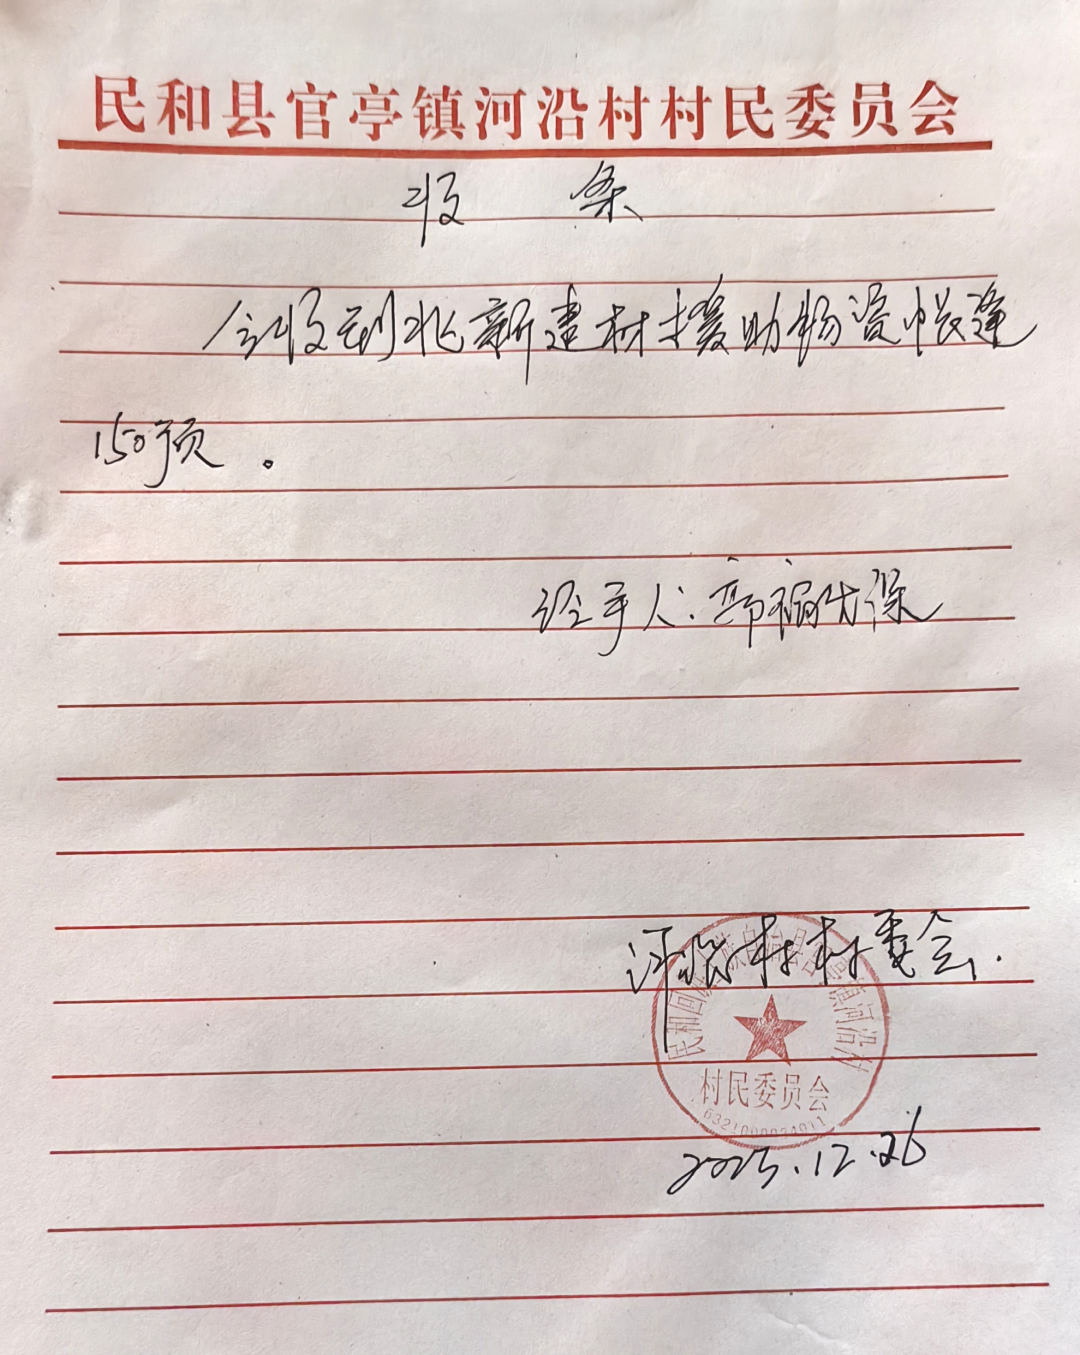 民和县官亭镇河沿村村民委员会
收 条
今收到北新建材援助物资帐篷
150顶。
经手人:郭福代保
河沿村村委会.
民和回族土族自治县官亭镇河沿村
村民委员会
2023.12.26